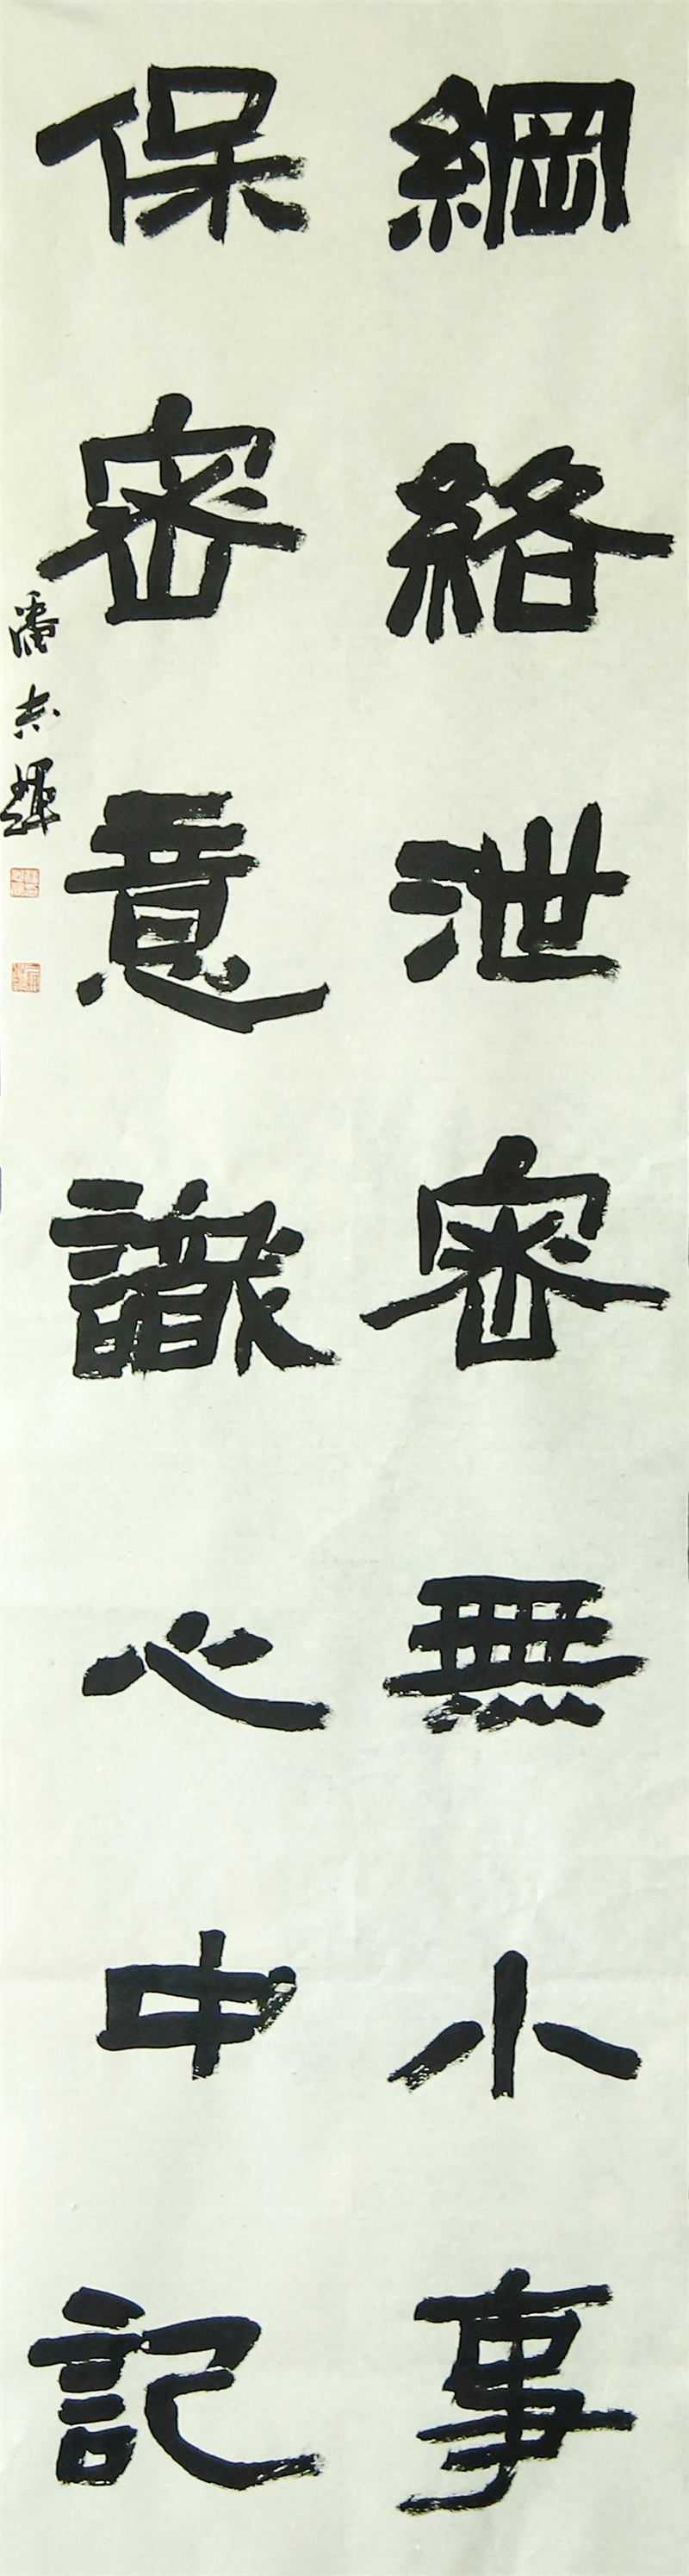 綱絡泄密無小事
保密意識心中記
潘志輝